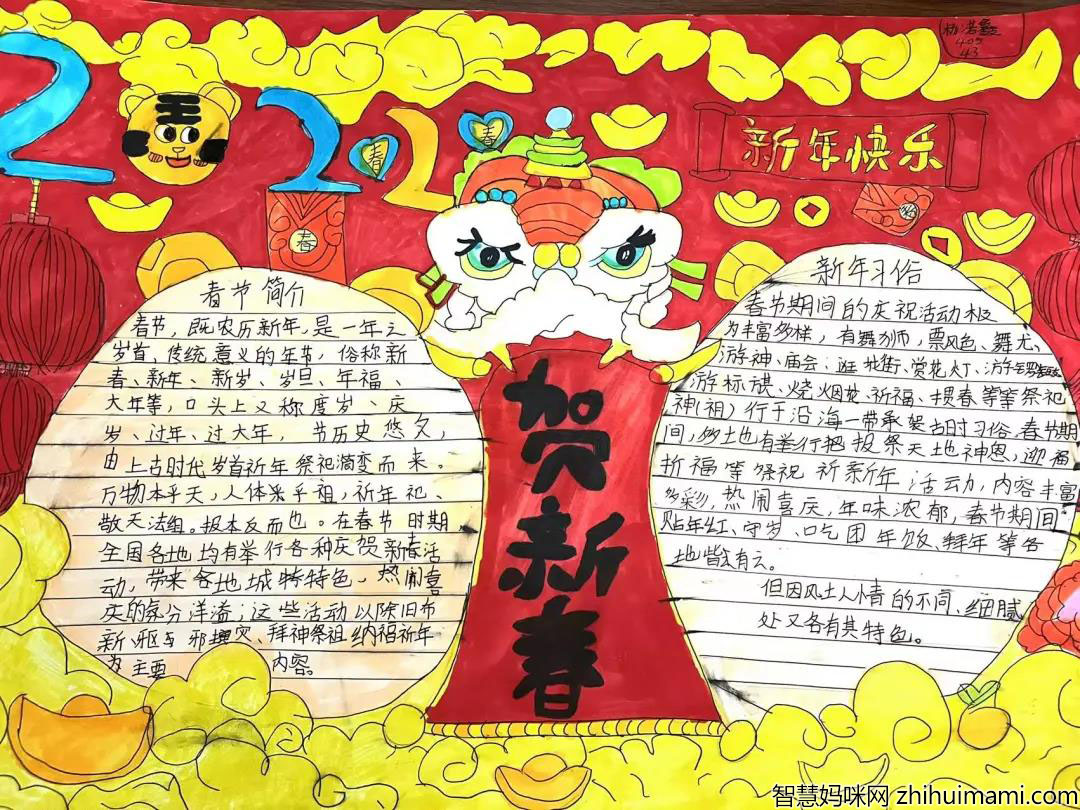 2022
王
春
春
春
春
405
43
新年快乐
贺新春
春节简介
春节，既农历新年，是一年之
岁首、传统意义的年节，俗称新
春、新年、新岁、岁旦、年福、
大年等，口头上又称度岁、庆
岁、过年、过大年，节历史悠久，
由上古时代岁首祈年祭祀演变而来。
万物本乎天，人体乎祖，祈年祀、
敬天法组。报本反而也。在春节时期
全国各地均有举行各种庆贺新春活
动，带来各地城特特色，热闹喜
庆的氛分洋溢；这些活动以除旧布
新、驱与邪攘灾、拜神祭祖纳福祈年
为主要内容。
新年习俗
春节期间的庆祝活动极
为丰富多样，有舞狮，票风色、舞龙、
游神、庙会、逛花街、赏花灯、游
游标谌、烧烟花、祈福、掼春等等祭祀
神(祖)行于沿海一带承袭古时习俗。春节期
间，多土地有举行把投祭天地神恩，迎福
折福等祭祝祈新年活动，内容丰富
多彩，热闹喜庆，年味浓郁，春节期间
贴年红、守岁、吃团年饭、拜年等各
地皆有云。
但因风土人情的不同、细腻
处又各有其特色。
智慧妈咪网 zhihuimami.com